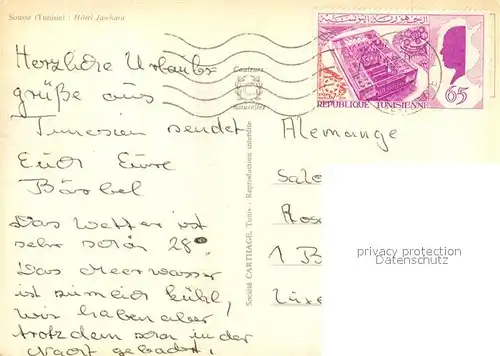 Sousse (Tunisie) : Hôtel Jawhara
Herzliche Urlaubs-
grüße aus
Tunesien sendet
Euch Eure
Bärbel
Das Wetter ist
sehr schön 28°.
Das Meerwasser
ist ziemlich kühl,
wir haben aber
trotzdem schon in der
Nacht gebadet!
Couleurs
naturelles
Société CARTHAGE, Tunis - Reproduction interdite
REPUBLIQUE TUNISIENNE
65
Alemange
1 B
privacy protection
Datenschutz